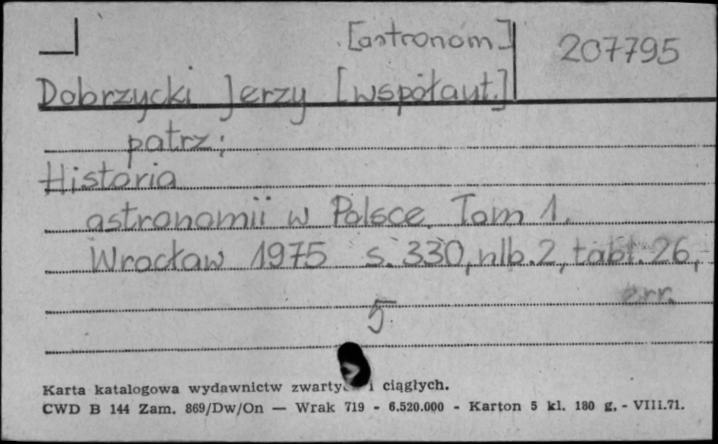 [astronom] 207795
Dobrzycki Jerzy [współaut.]
patrz:
Historia
astronomii w Polsce. Tom 1.
Wrocław 1975 s. 330, nlb. 2, tabl. 26,
err.
5
Karta katalogowa wydawnictw zwartych i ciągłych.
CWD B 144 Zam. 869/Dw/On — Wrak 719 - 6.520.000 - Karton 5 kl. 180 g. - VIII.71.